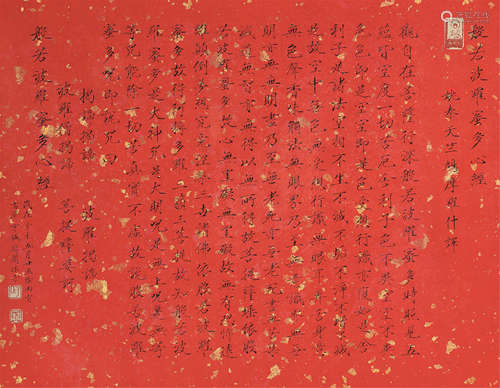 般若波羅蜜多心經
姚秦天竺鳩摩羅什譯
觀自在菩薩行深般若波羅蜜多時照見五
蘊皆空度一切苦厄舍利子色不異空空不異
色色即是空空即是色受想行識亦復如是舍
利子是諸法空相不生不滅不垢不淨不增不減
是故空中無色無受想行識無眼耳鼻舌身意
無色聲香味觸法無眼界乃至無意識界無無
明亦無無明盡乃至無老死亦無老死盡無苦集
滅道無智亦無得以無所得故菩提薩埵依般
若波羅蜜多故心無罣礙無罣礙故無有恐怖遠
離顛倒夢想究竟涅槃三世諸佛依般若波羅
蜜多故得阿耨多羅三藐三菩提故知般若波
羅蜜多是大神咒是大明咒是無上咒是無等
等咒能除一切苦真實不虛故說般若波羅
蜜多咒即說咒曰
揭諦揭諦 波羅揭諦
波羅僧揭諦 菩提薩婆訶
般若波羅蜜多心經